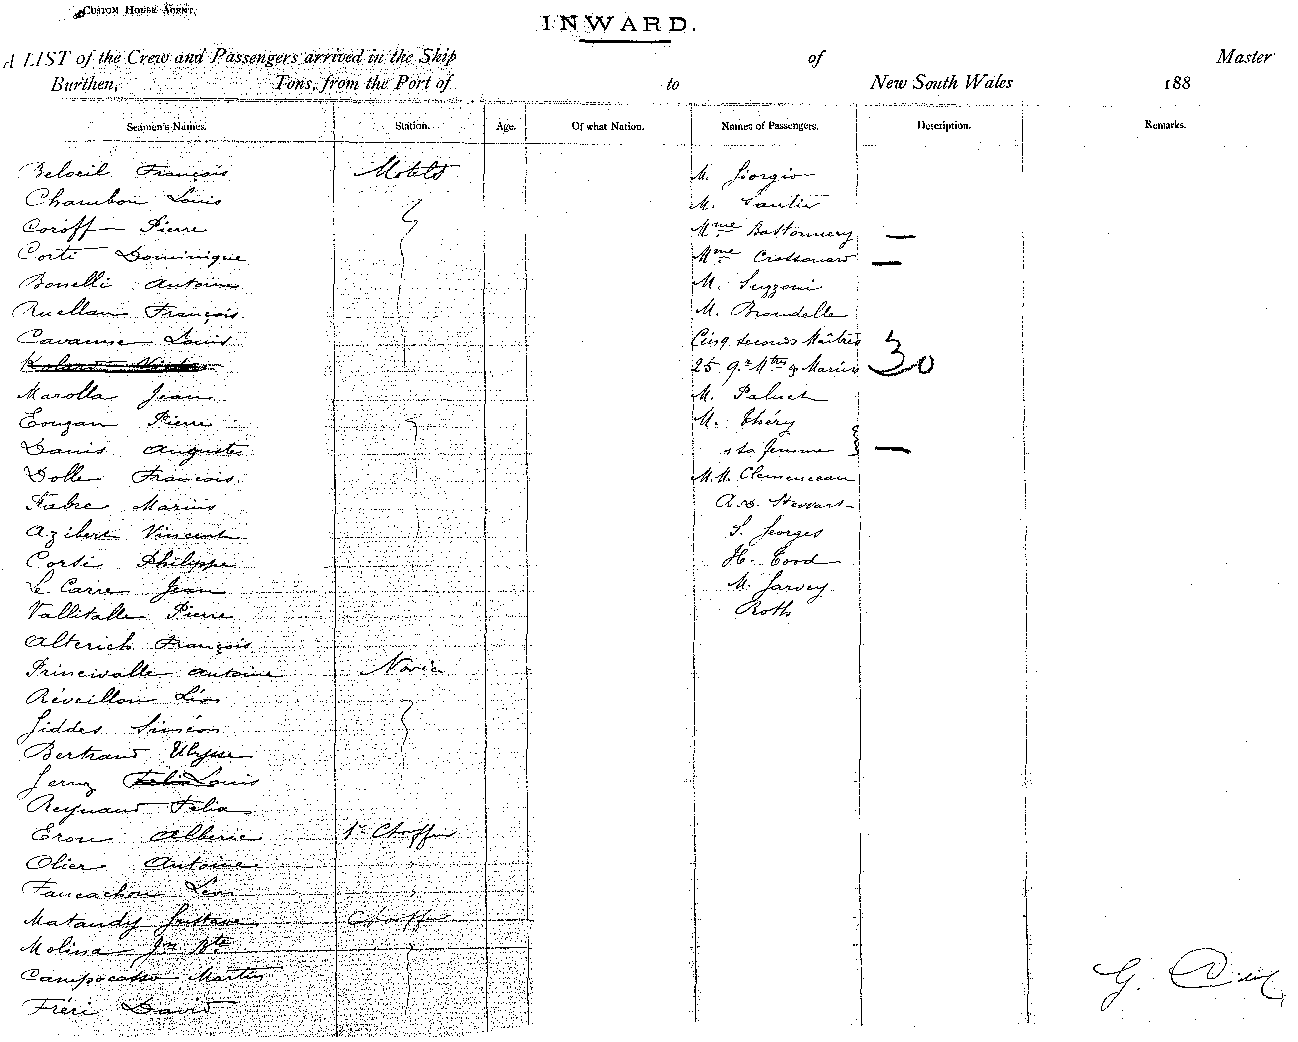 CUSTOM HOUSE AGENT.
INWARD.
A LIST of the Crew and Passengers arrived in the Ship of Master
Burthen, Tons, from the Port of to New South Wales 188
Seamen's Names. Station. Age. Of what Nation. Names of Passengers. Description. Remarks.
Beloeil François Matelot M. Giorgio
Chambon Louis M. Gautier
Coroff Pierre Mme
Corti Dominique Mme
Bonelli Antoine M. Suzzoni
Ruellan François M. Brondelle
Cavanne Louis Cinq seconds Maîtres
25 qr Mtres & Marins 30
Marolla Jean M. Paluch
Pierre M. Théry
Auguste & sa femme
Dolle François M.M. Clemenceau
Fabre Marius Stewart
Azibert Vincent S. Georges
Corti Philippe H. Good
Le Carre Jean M. Garvey
Vallitalle Pierre Roth
Alterich François
Princivalle Antoine Novice
Réveillon Léon
Giddes Siméon
Bertrand Ulysse
Louis
Reynaud Felix
1r Chauffr
Olier Antoine
Faucachon Léon
Matandy Gustave Chauffr
Molina Jn Bte
Campocasso Martin
Féri David
G.